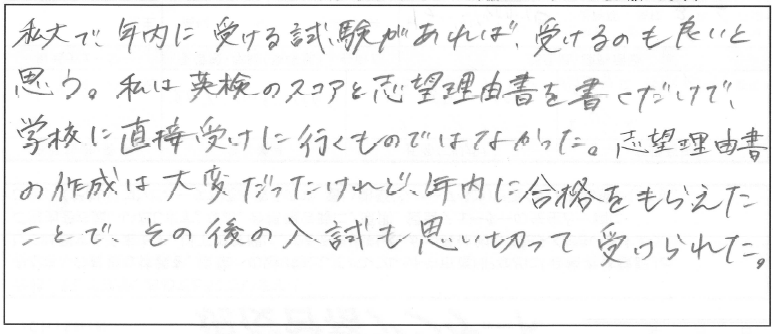 私大で、年内に受ける試験があれば、受けるのも良いと
思う。私は英検のスコアと志望理由書を書くだけで、
学校に直接受けに行くものではなかった。志望理由書
の作成は大変だったけれど、年内に合格をもらえた
ことで、その後の入試も思い切って受けられた。